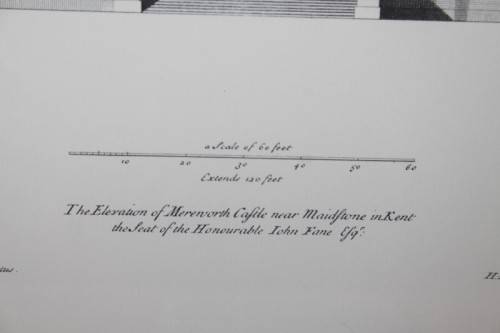 a Scale of 60 feet
10 20 30 40 50 60
Extends 120 feet
The Elevation of Mereworth Castle near Maidstone in Kent
the Seat of the Honourable Iohn Fane Esqr.